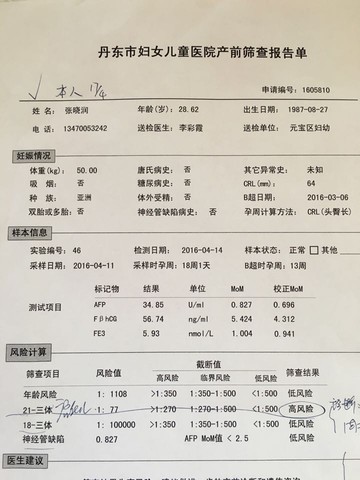 丹东市妇女儿童医院产前筛查报告单
本人 17/4
申请编号：1605810
姓 名：张晓润 年龄(岁)：28.62 出生日期：1987-08-27
电 话：13470053242 送检医生：李彩霞 送检单位：元宝区妇幼
妊娠情况
体重(kg)：50.00 唐氏病史：否 其它异常史：未知
吸 烟：否 糖尿病史：否 CRL(mm)：64
种 族：亚洲 体外受精：否 B超日期：2016-03-06
双胎或多胎：否 神经管缺陷病史：否 孕周计算方法：CRL(头臀长)
样本信息
实验编号：46 检测日期：2016-04-14 样本状态：正常 □ 其他
采样日期：2016-04-11 采样时孕周：18周1天 B超时孕周：13周
标记物 结果 单位 MoM 校正MoM
测试项目 AFP 34.85 U/ml 0.827 0.696
FβhCG 56.74 ng/ml 5.424 4.312
FE3 5.93 nmol/L 1.004 0.941
风险计算
筛查项目 风险值 截断值 筛查结果
高风险 临界风险 低风险
年龄风险 1：1108 >1:350 1:350-1:500 <1:500 低风险
21-三体 1：77 >1:270 1:270-1:500 <1:500 高风险
18-三体 1：100000 >1:350 1:350-1:500 <1:500 低风险
神经管缺陷 0.827 AFP MoM值 < 2.5 低风险
医生建议